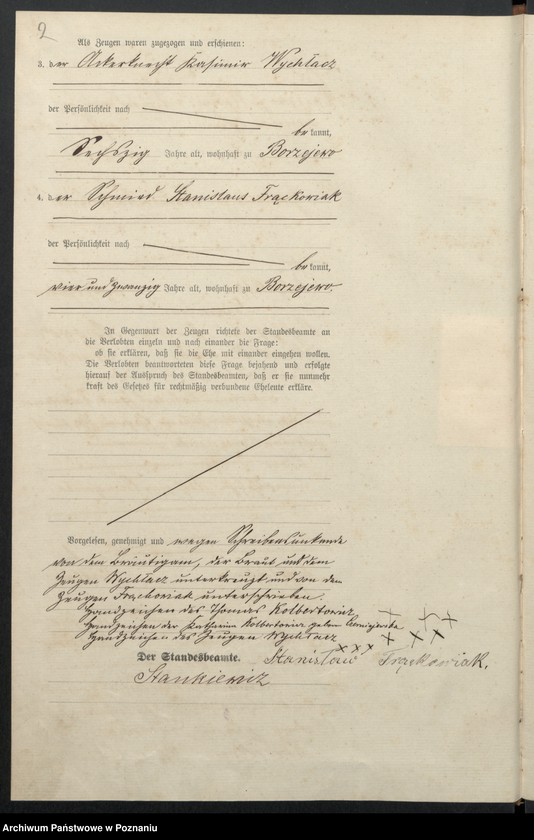 2
Als Zeugen waren zugezogen und erschienen:
3. der Ackerknecht Kasimir Wychlacz
der Persönlichkeit nach
be kannt,
Sechszig Jahre alt, wohnhaft zu Borzejewo
4. der Schmied Stanislaus Frąckowiak
der Persönlichkeit nach
be kannt,
vier und zwanzig Jahre alt, wohnhaft zu Borzejewo.
In Gegenwart der Zeugen richtete der Standesbeamte an
die Verlobten einzeln und nach einander die Frage:
ob sie erklären, daß sie die Ehe mit einander eingehen wollen.
Die Verlobten beantworteten diese Frage bejahend und erfolgte
hierauf der Ausspruch des Standesbeamten, daß er sie nunmehr
kraft des Gesetzes für rechtmäßig verbundene Eheleute erkläre.
Vorgelesen, genehmigt und wegen Schreibensunkunde
von dem Bräutigam, der Braut und dem
Zeugen Wychlacz unterkreuzt und von dem
Zeugen Frąckowiak unterschrieben.
Handzeichen des Thomas Kolbertowicz +++
Handzeichen der Katharina Kolbertowicz geborn
Handzeichen des Zeugen Wychlacz xxx
Der Standesbeamte. Stanisław Frąckowiak.
Stankiewiz
Archiwum Państwowe w Poznaniu